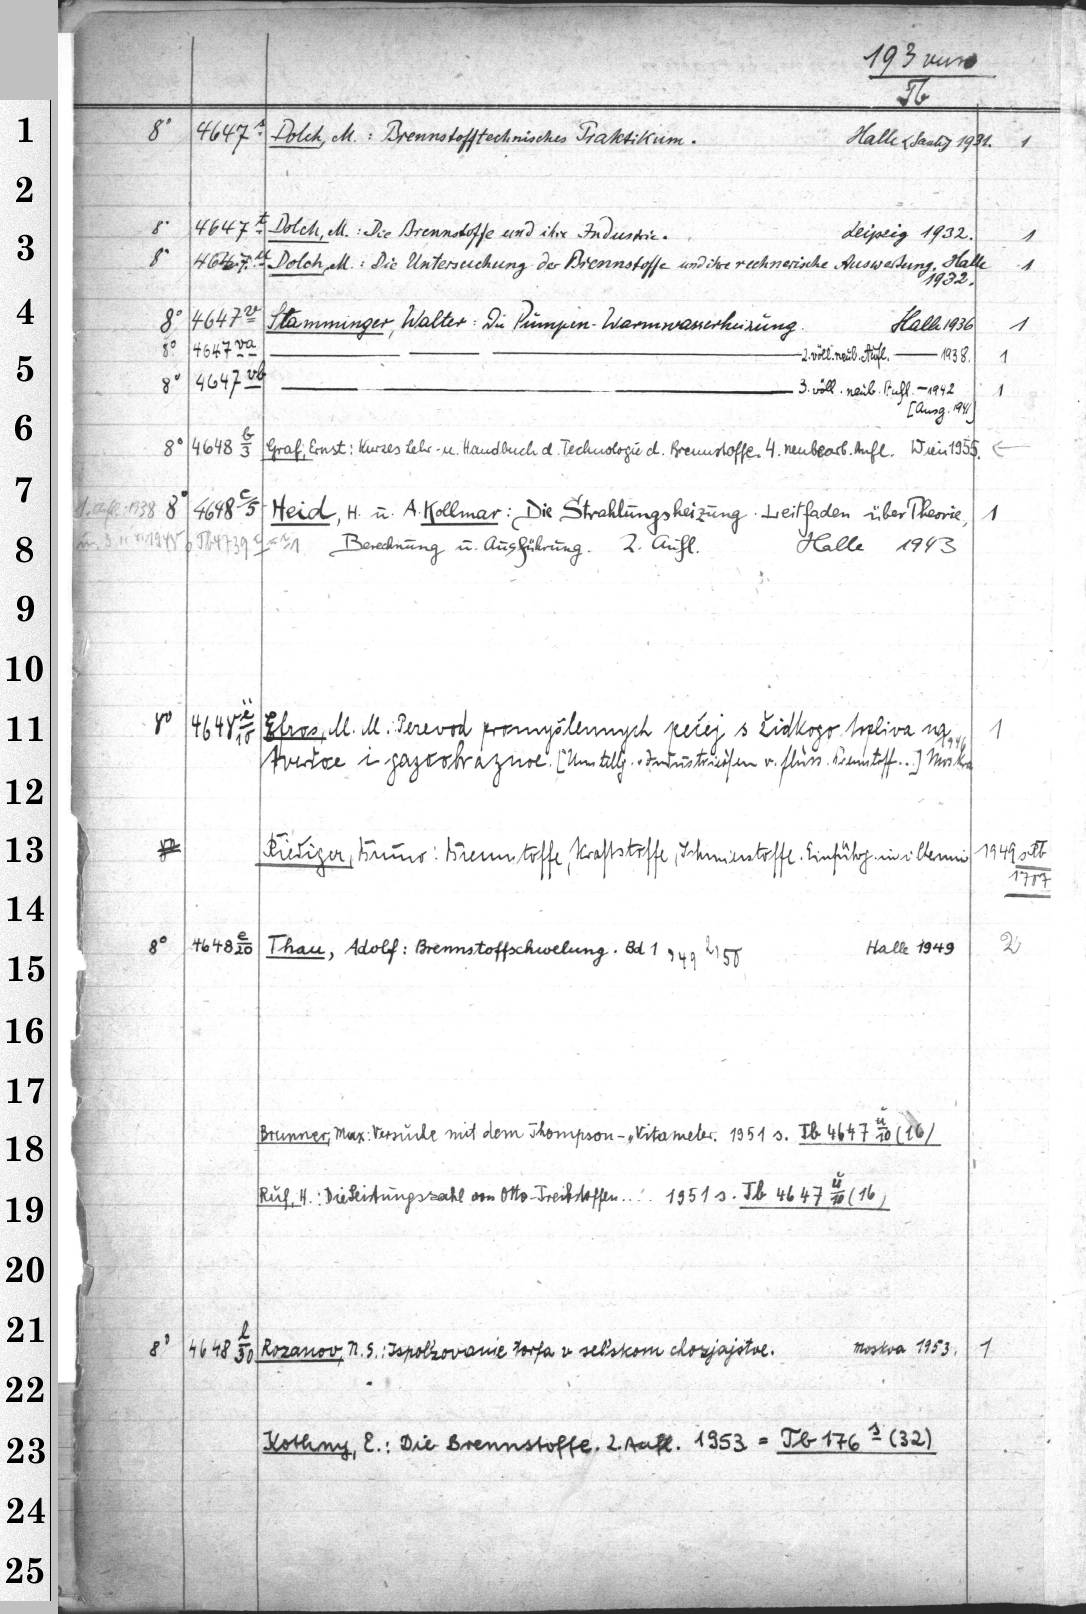 193 verso
Tb
1 8° 4647 s Dolch, M.: Brennstofftechnisches Praktikum. Halle 1931. 1
2
8° 4647 t Dolch, M.: Die Brennstoffe und ihre Industrie. Leipzig 1932. 1
3 8° 4647 u Dolch, M.: Die Untersuchung der Brennstoffe und ihre rechnerische Auswertung. Halle 1
1932.
4 8° 4647 v Stamminger, Walter: Die Pumpen-Warmwasserheizung. Halle 1936 1
8° 4647 va 2. völl. neub. Aufl. — 1938. 1
5 8° 4647 vb 3. völl. neub. Aufl. — 1942 1
[Ausg. 1941]
6 8° 4648 b/3 Graf, Ernst: Kurzes Lehr- u. Handbuch d. Technologie d. Brennstoffe. 4. neubearb. Aufl. Wien 1955. ←
7 1. Aufl. 1938 8° 4648 c/5 Heid, H. u. A. Kollmar: Die Strahlungsheizung. Leitfaden über Theorie, 1
8 Tb 4739 Berechnung u. Ausführung. 2. Aufl. Halle 1943
9
10
11 8° 4648 ë/10 Efros, M. M.: Perevod promyšlennych pečej s židkogo topliva na 1
tverdoe i gazoobraznoe. [Umstellg. v. Industrieöfen v. flüss. Brennstoff...] Moskva 1946
12
13 8° Riediger, Bruno: Brennstoffe, Kraftstoffe, Schmierstoffe. Einführg. in i. Chemie 1949 s. Tb
1707
14
8° 4648 e/20 Thau, Adolf: Brennstoffschwelung. Bd 1 949 2) 50 Halle 1949 2
15
16
17
18 Brunner, Max: Versuche mit dem Thompson-„Vitameter. 1951 s. Tb 4647 ü/10 (16)
19 Ruf, H.: Die Leistungszahl von Otto-Treibstoffen... 1951 s. Tb 4647 ü/10 (16)
20
21 8° 4648 l/30 Rozanov, N. S.: Ispol'zovanie torfa v sel'skom chozjajstve. Moskva 1953. 1
22
23 Kothny, E.: Die Brennstoffe. 2. Aufl. 1953 = Tb 176 s (32)
24
25